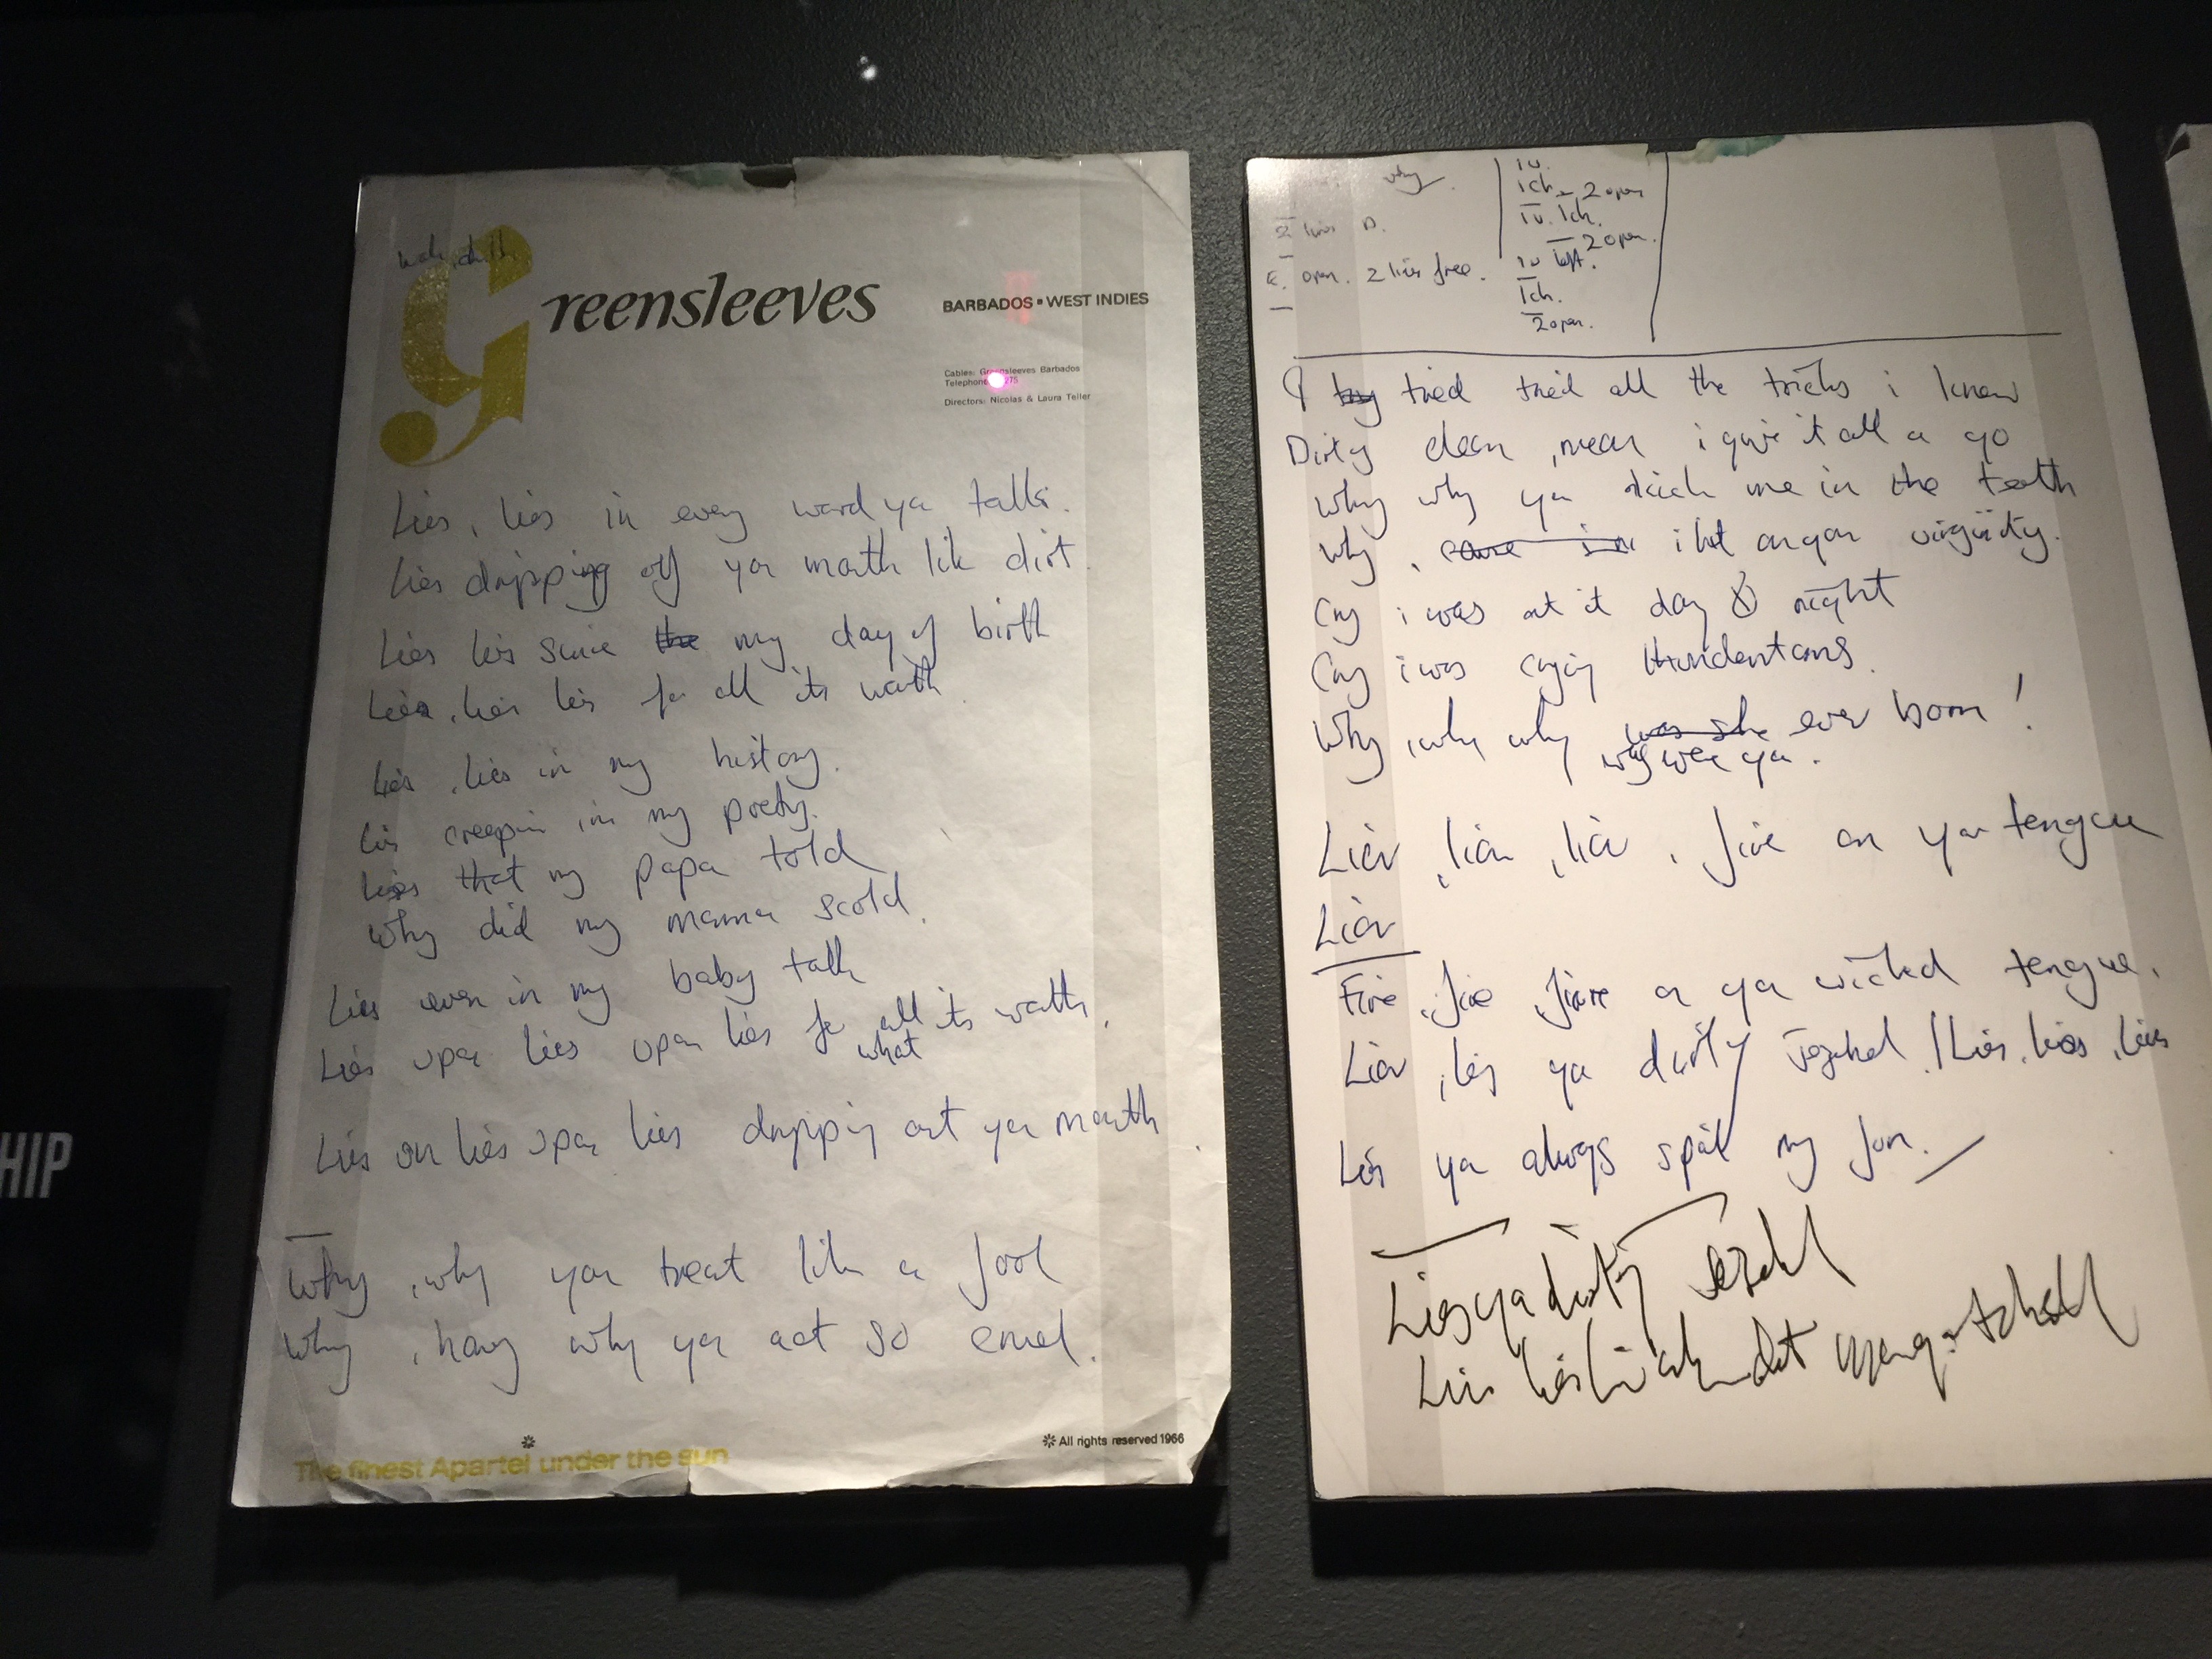 Greensleeves
BARBADOS • WEST INDIES
Cables: Greensleeves Barbados
Telephone 275
Directors: Nicolas & Laura Teller
Lies, lies in every word ya talk.
Lies dripping off your mouth like dirt.
Lies lies since the my day of birth
Lies, lies lies for all its worth
Lies, lies in my history.
Lies creepin in my poetry.
Lies that my papa told
Why did my mama scold.
Lies even in my baby talk
Lies upon lies upon lies for all its worth.
what
Lies on lies upon lies dripping out your mouth.
Why, why you treat like a fool
Why, honey why ya act so cruel.
The finest Apartel under the sun
All rights reserved 1966
HIP
why
1v.
1ch - 2 open
1v. 1ch.
2 open.
2 lines D.
open. 2 lines free.
1v left.
1ch.
2 open.
I try tried tried all the tricks i know
Dirty clean, mean i give it all a go
Why why ya kick me in the teeth
Why, cause i on your virginity.
Cry i was at it day & night
Cry i was crying
Why, why why was she ever born!
why were ya.
Liar, liar, liar, fire on your tongue
Liar
Fire, fire, fire on ya wicked tongue.
Liar, lies ya dirty Jezebel! Lies, lies, lies
Lies ya always spoil my fun.
Lies ya dirty Jezebel
Lies lies